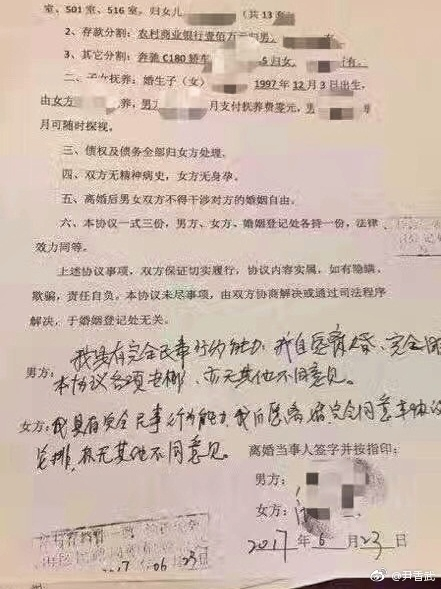 室、501 室、516 室，归女儿 （共 13 套
2、存款分割：农村商业银行壹佰万元归男
3、其它分割：奔驰 C180 轿车 5 归女、 有。
二、子女抚养：婚生子（女） 1997 年 12 月 3 日出生，
由女方 养，男方 月支付抚养费零元，男
月可随时探视。
三、债权及债务全部归女方处理。
四、双方无精神病史，女方无身孕。
五、离婚后男女双方不得干涉对方的婚姻自由。
六、本协议一式三份，男方、女方、婚姻登记处各持一份，法律
效力同等。
上述协议事项，双方保证切实履行，协议内容实属，如有隐瞒、
欺骗，责任自负。本协议未尽事项，由双方协商解决或通过司法程序
解决，于婚姻登记处无关。
我具有完全民事行为能力，我自愿离婚，完全同
男方：本协议各项安排，亦无其他不同意见。
女方：我具有完全民事行为能力，我自愿离婚，完全同意本协议
安排，亦无其他不同意见。
离婚当事人签字并按指印：
男方：
女方：
2017 年 6 月 23 日
2017 06 23
@尹香武